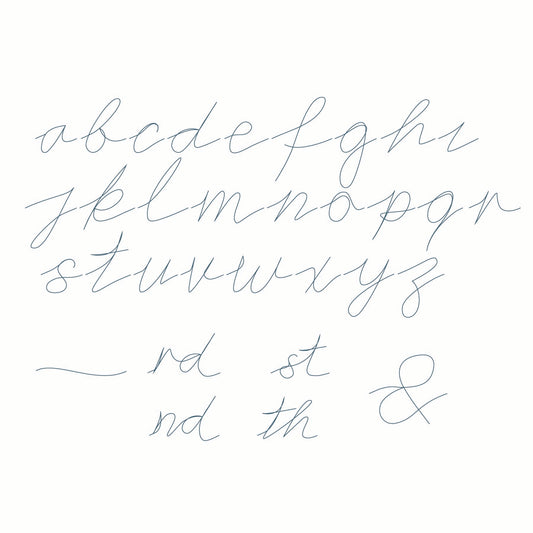 abcdefghı
ȷklmnopqr
stuvwxyz
rd st
nd th &